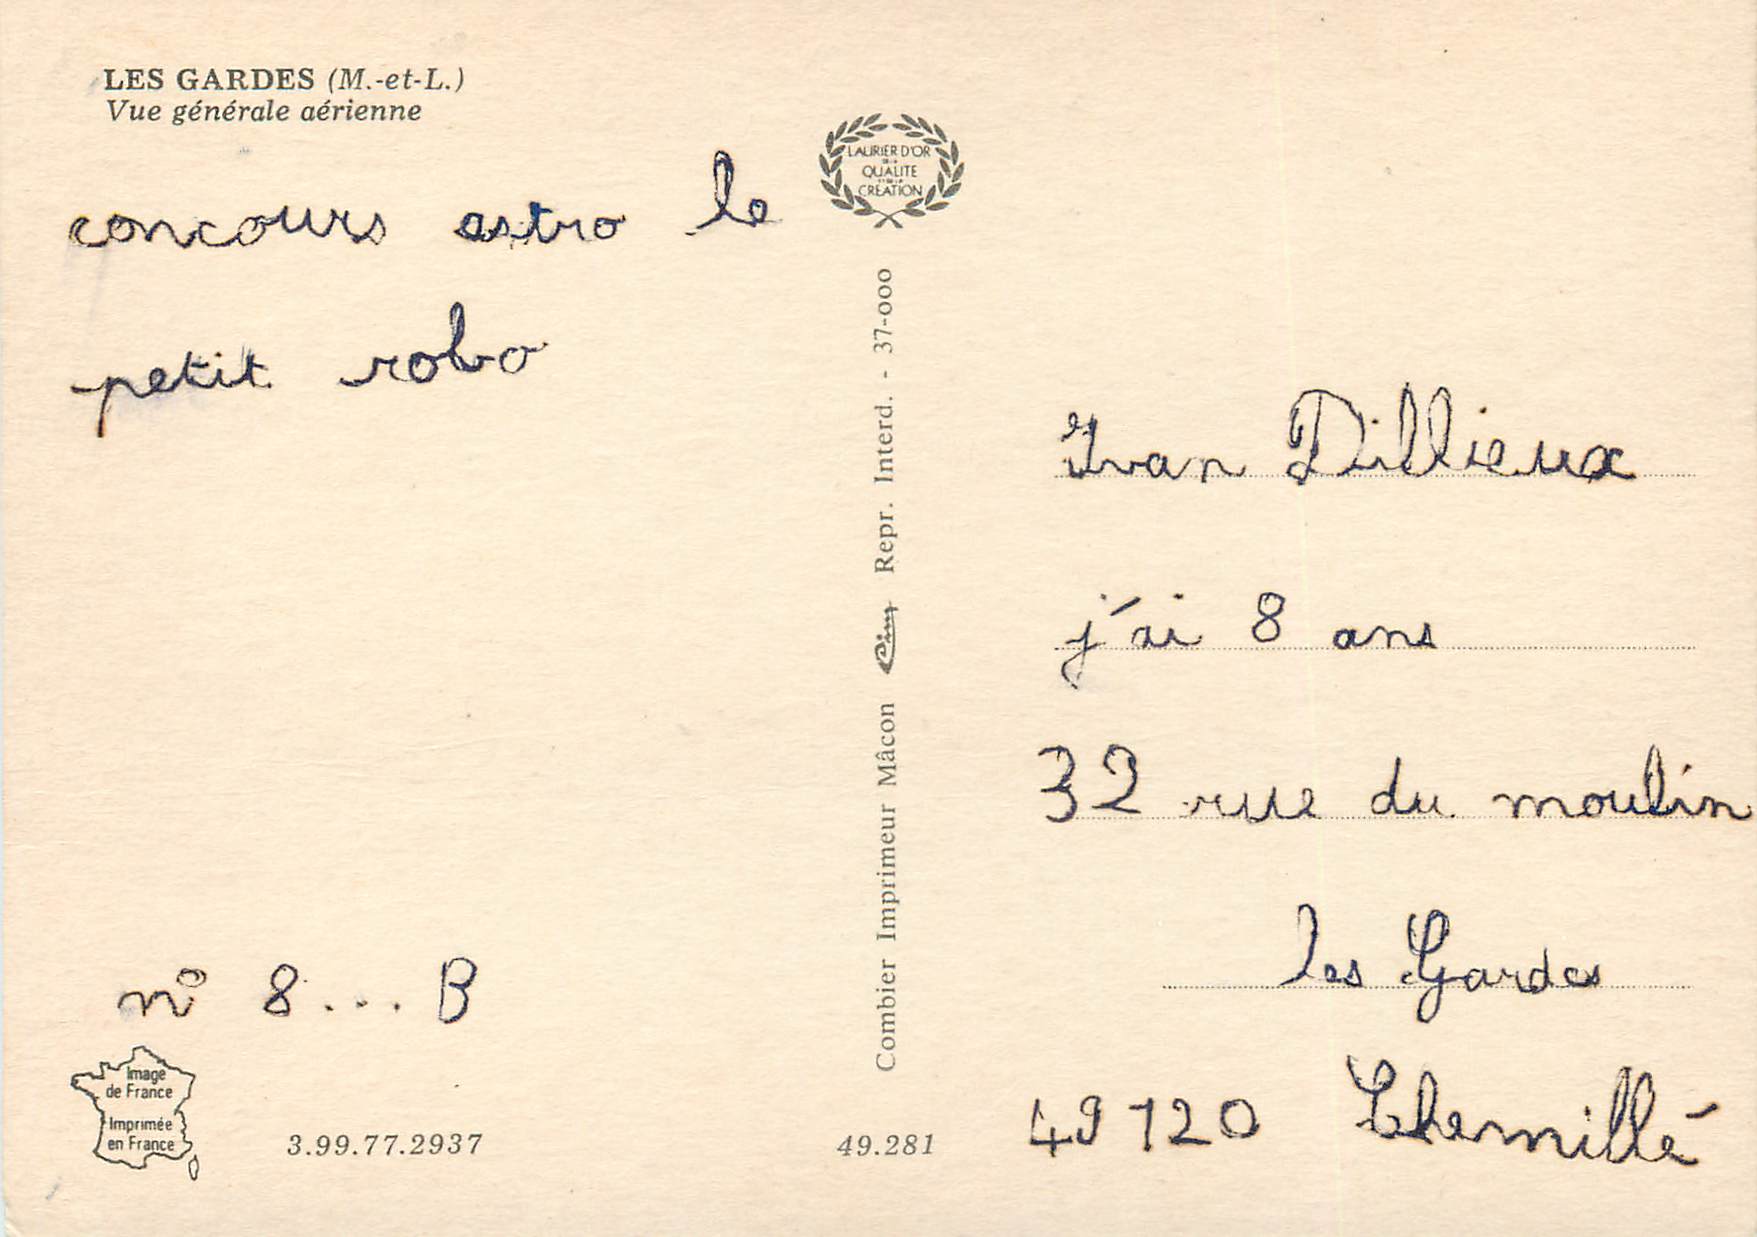 LES GARDES (M.-et-L.)
Vue générale aérienne
concours astro le
petit robo
n° 8... B
Image
de France
Imprimée
en France
3.99.77.2937
LAURIER D'OR
DE LA
QUALITE
ET DE LA
CRÉATION
Combier Imprimeur Mâcon Cim Repr. Interd. - 37-000
49.281
Ivan Dillieux
j'ai 8 ans
32 rue du moulin
les Gardes
49120 Chemillé